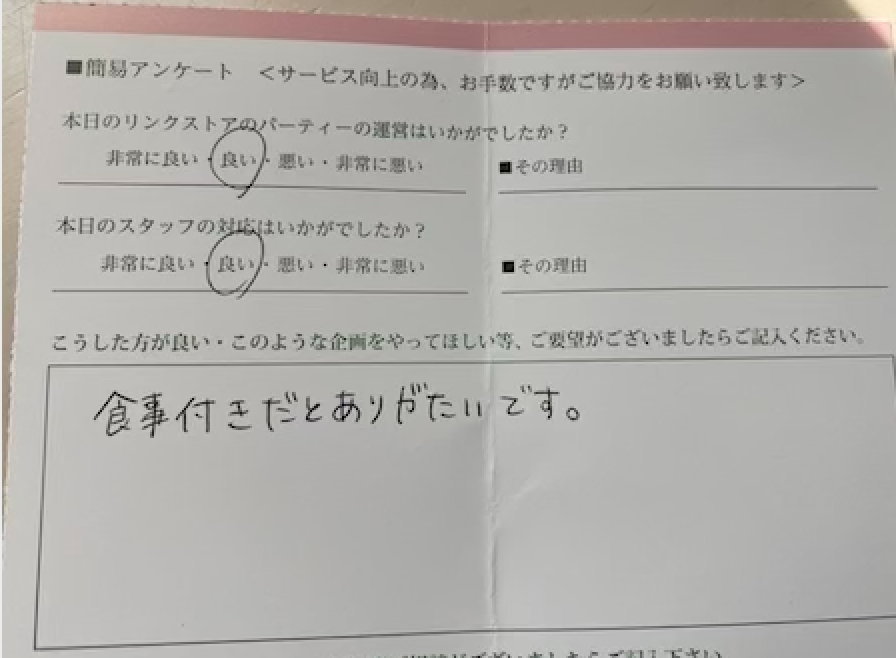 ■簡易アンケート　＜サービス向上の為、お手数ですがご協力をお願い致します＞
本日のリンクストアのパーティーの運営はいかがでしたか？
非常に良い・良い・悪い・非常に悪い　■その理由
本日のスタッフの対応はいかがでしたか？
非常に良い・良い・悪い・非常に悪い　■その理由
こうした方が良い・このような企画をやってほしい等、ご要望がございましたらご記入ください。
食事付きだとありがたいです。
がございましたらご記入下さい